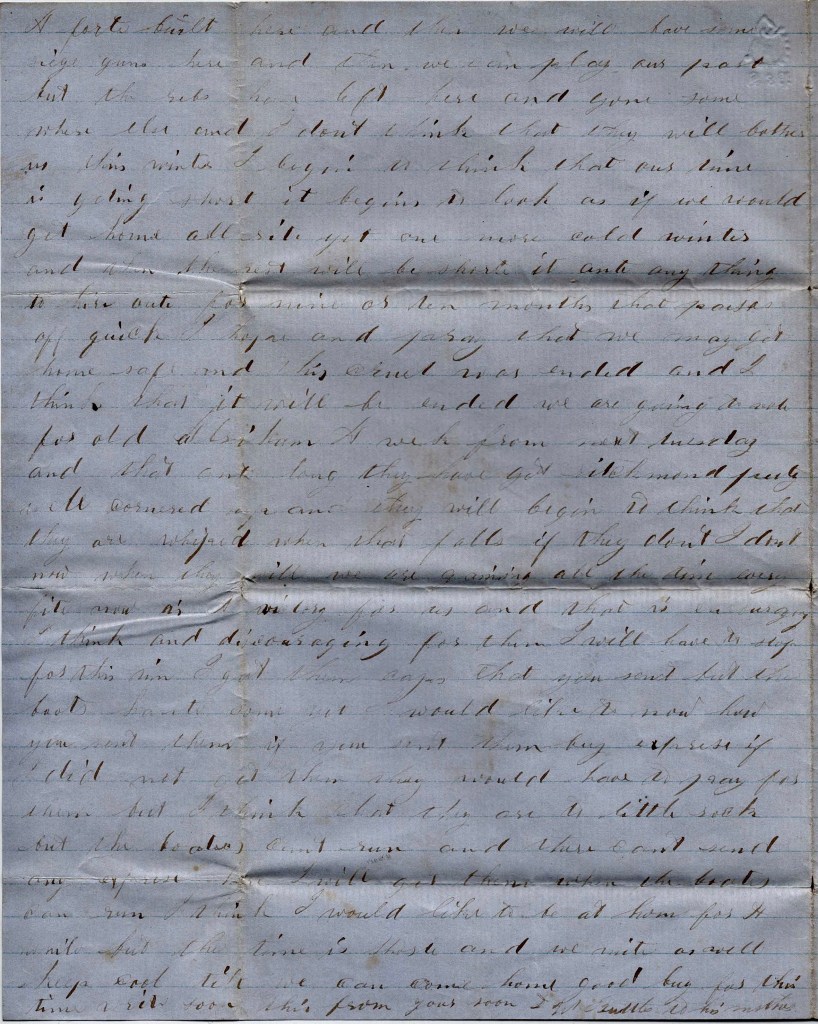 A forte built here and then we will have some
siege guns here and then we can play our part
but the rebs have left here and gone some
wher else and I don't think that they will bother
us this winter I begin to think that our time
is geting short it begins to look as if we would
get home all rite yet one more cold winter
and when the rest will be shorte it ante any thing
to hire oute for nine or ten months that passes
off quick I hope and pray that we may get
home safe and this cruel was ended and I
think that it will be ended we are going to vote
for old abraham A week from next tuesday
and that ant long they have got ritchmond prety
well cornered up and they will begin to think that
they are whiped when that falls if they don't I don't
now when they will we are gaining all the time every
fite now is A victory for us and that is encouraging
I think and discouraging for them I will have to stop
for this time I got them caps that you send but the
boots hante come yet I would like to now how
you sent them if you sent them buy express if
I did not get them they would have to pay for
them but I think that they are to little rock
but the boates can't run and there can't send
any express here I will get them when the boates
can run I think I would like to be at home for A
while but the time is shorte and we mite as well
keep cool till we can come home good buy for this
time write soon this from your soon to his mother